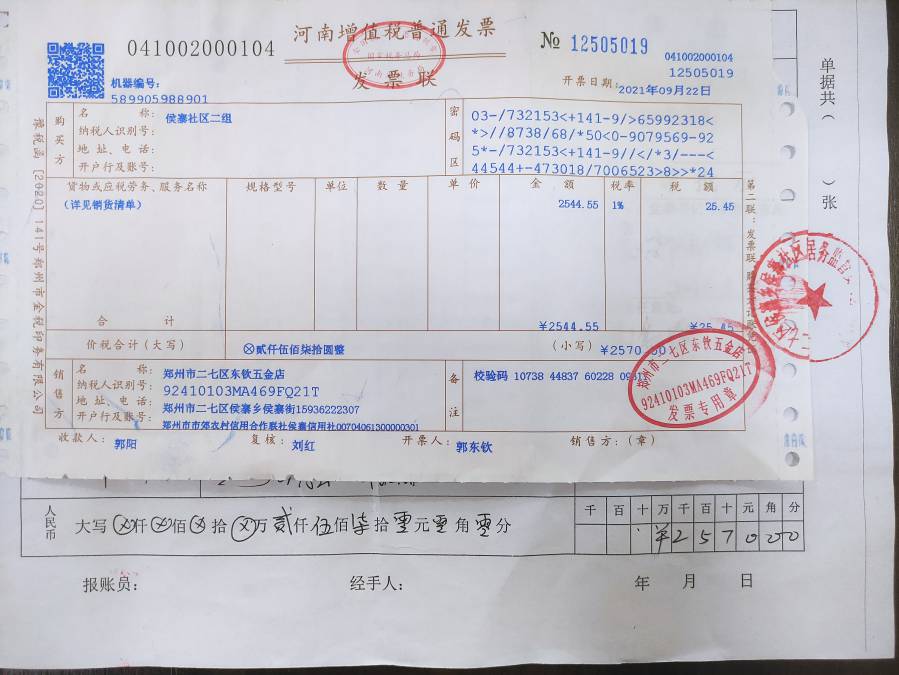 河南增值税普通发票
发票联
041002000104
№ 12505019
041002000104
12505019
机器编号:
589905988901
开票日期:
2021年09月22日
单据共( )张
购买方
名 称: 侯寨社区二组
纳税人识别号:
地 址、电 话:
开户行及账号:
密码区
03-/732153<+141-9/>65992318<
*>//8738/68/*50<0-9079569-92
5*-/732153<+141-9//</*3/---<
44544+-473018/7006523>8>>*24
货物或应税劳务、服务名称 规格型号 单位 数 量 单 价 金 额 税率 税 额
(详见销货清单) 2544.55 1% 25.45
合 计 ¥2544.55 ¥25.45
价税合计(大写) ⊗贰仟伍佰柒拾圆整 (小写) ¥2570.00
销售方
名 称: 郑州市二七区东钦五金店
纳税人识别号: 92410103MA469FQ21T
地 址、电 话: 郑州市二七区侯寨乡侯寨街15936222307
开户行及账号: 郑州市市郊农村信用合作联社侯寨信用社00704061300000301
备注
校验码 10738 44837 60228
收款人: 郭阳 复核: 刘红 开票人: 郭东钦 销售方:(章)
郑州市二七区东钦五金店
92410103MA469FQ21T
发票专用章
第二联:发票联
人民币 大写 ⊗仟⊗佰⊗拾⊗万贰仟伍佰柒拾零元零角零分
千 百 十 万 千 百 十 元 角 分
¥ 2 5 7 0 0 0
报账员: 经手人: 年 月 日